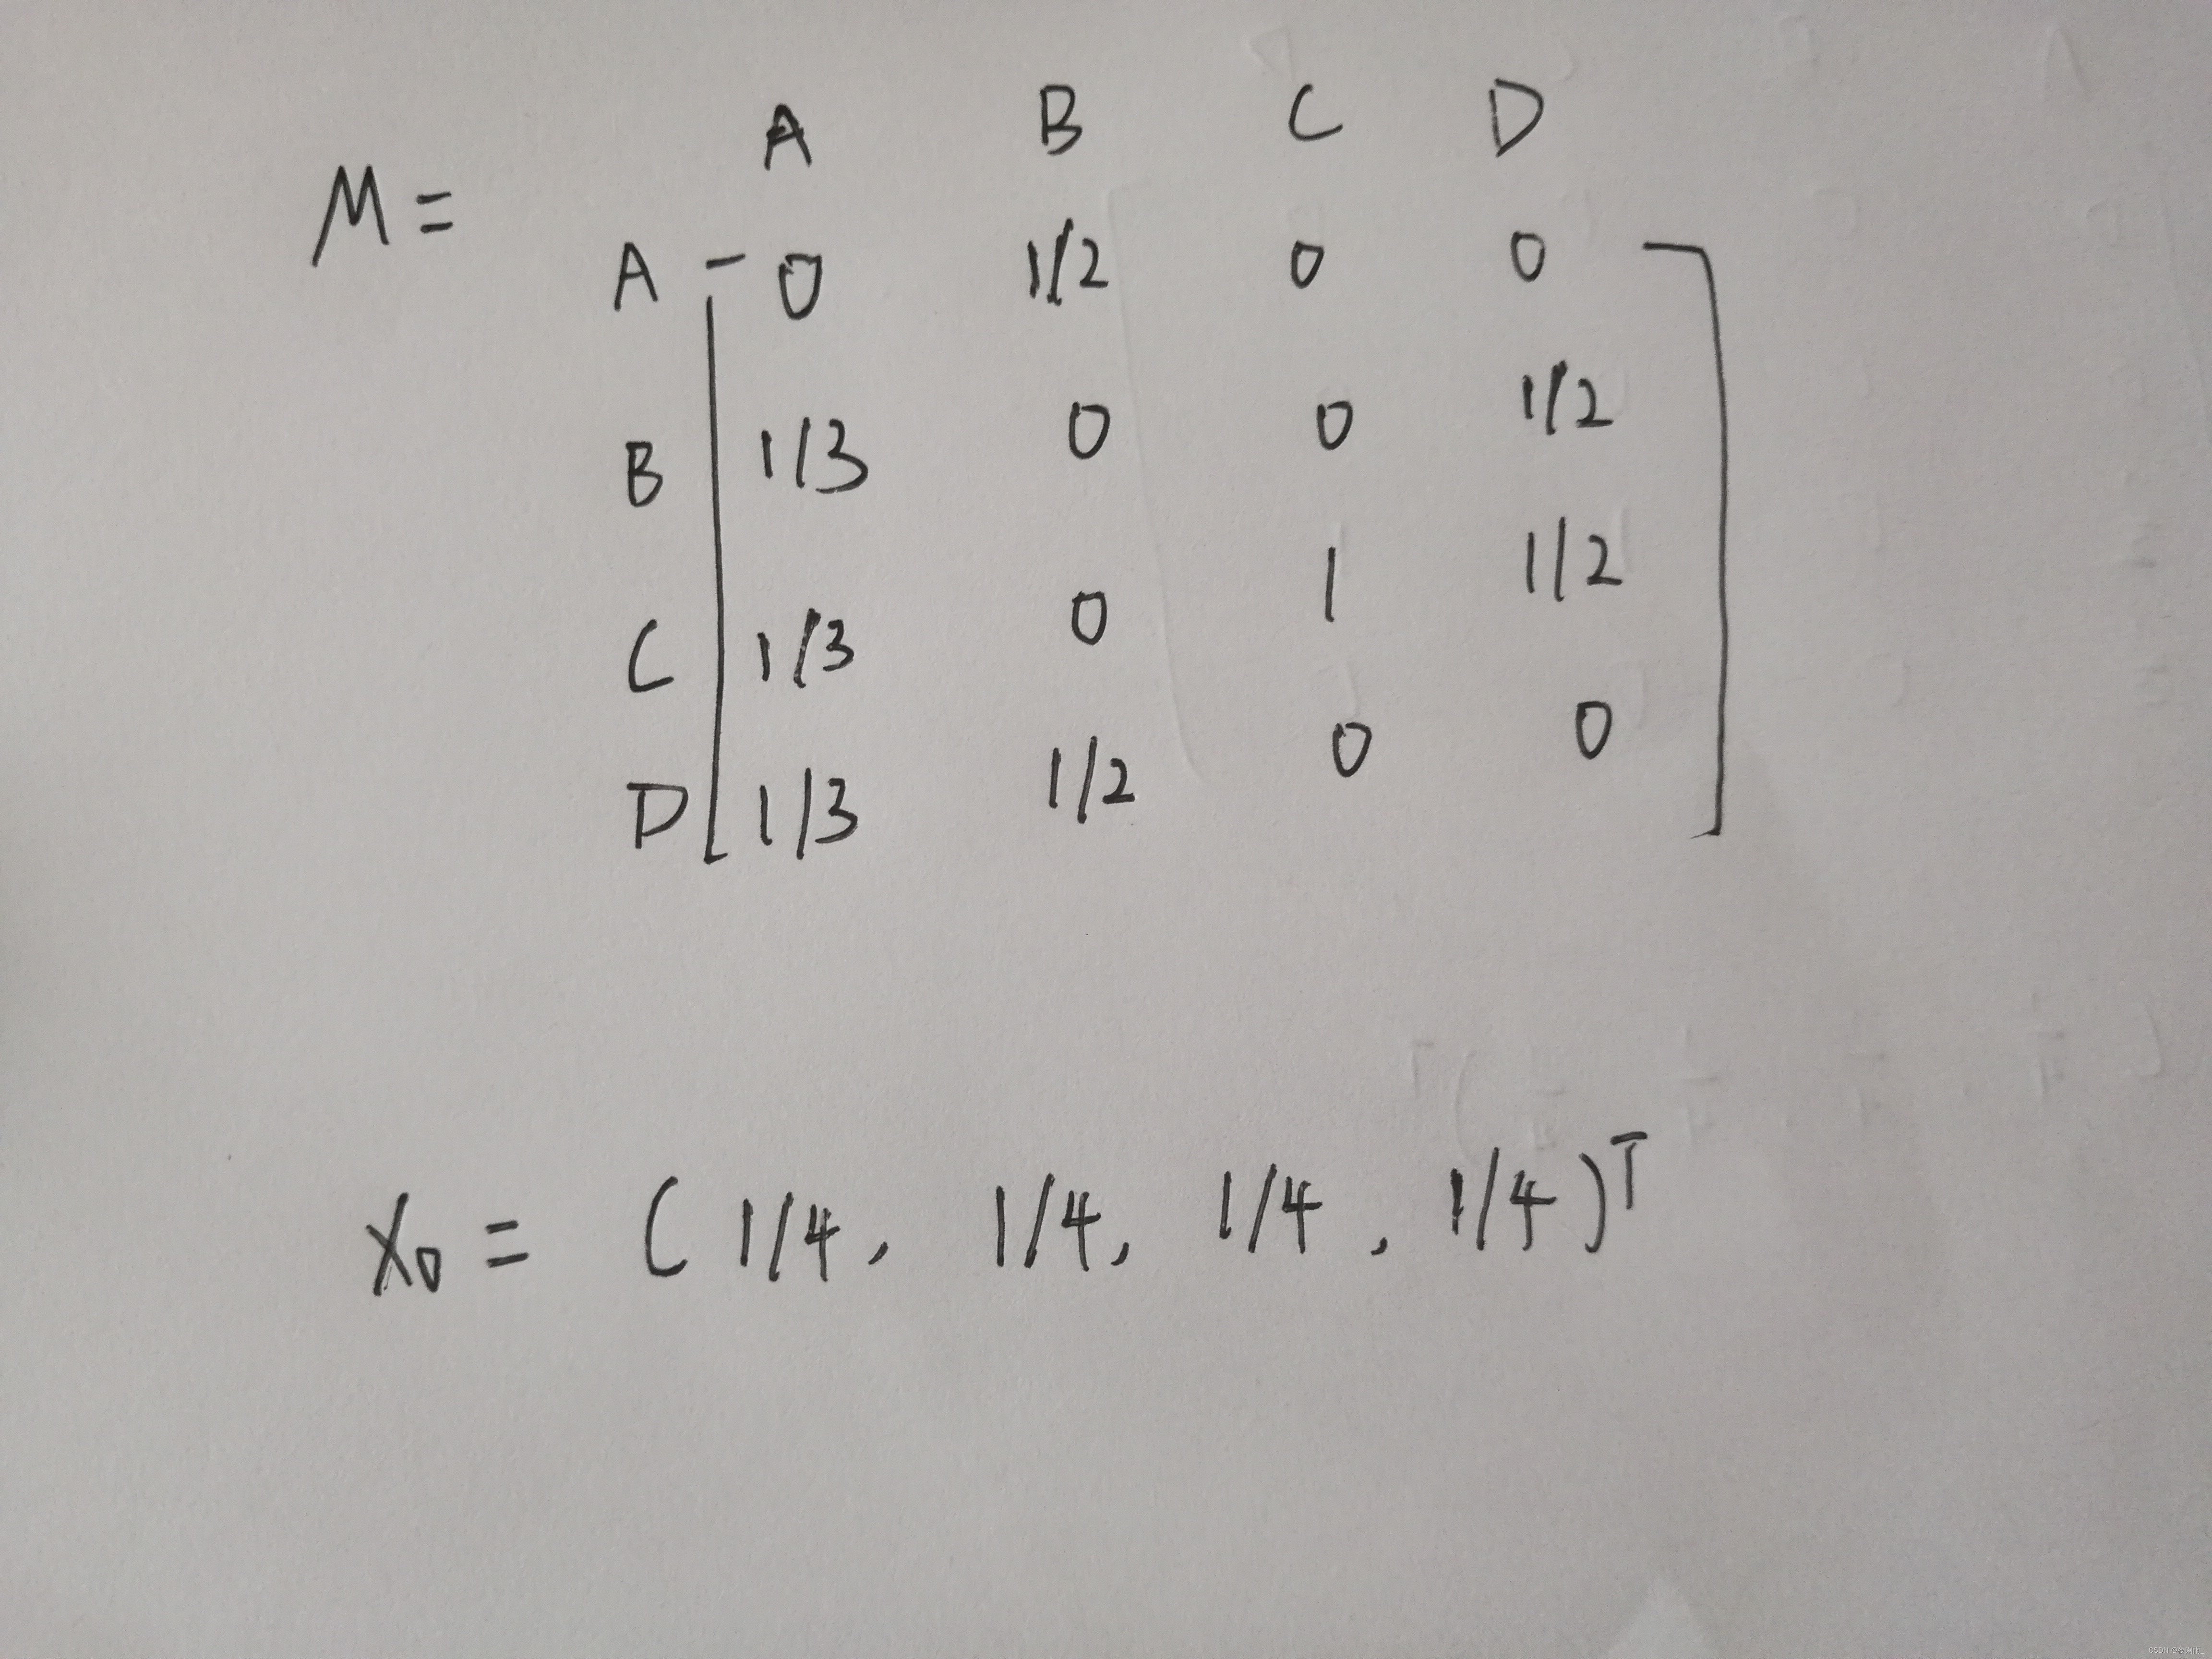 A B C D
M =
A 0 1/2 0 0
B 1/3 0 0 1/2
C 1/3 0 1 1/2
D 1/3 1/2 0 0
X0 = ( 1/4, 1/4, 1/4, 1/4 )T